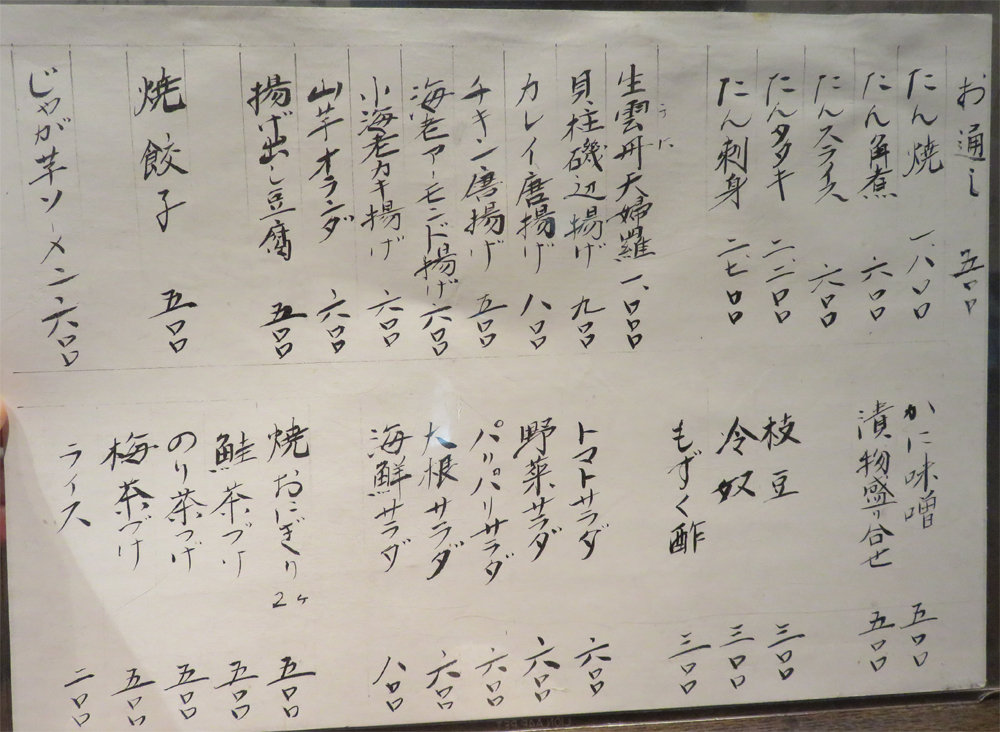 お通し 五〇〇
たん焼 一、八〇〇
たん角煮 六〇〇
たんスライス 六〇〇
たんタタキ 二、二〇〇
たん刺身 二、七〇〇
うに
生雲丹天婦羅 一、〇〇〇
貝柱磯辺揚げ 九〇〇
カレイ唐揚げ 八〇〇
チキン唐揚げ 五〇〇
海老アーモンド揚げ 六〇〇
小海老カキ揚げ 六〇〇
山芋オランダ 六〇〇
揚げ出し豆腐 五〇〇
焼餃子 五〇〇
じゃが芋ソーメン 六〇〇
かに味噌 五〇〇
漬物盛り合せ 五〇〇
枝豆 三〇〇
冷奴 三〇〇
もずく酢 三〇〇
トマトサラダ 六〇〇
野菜サラダ 六〇〇
パリパリサラダ 六〇〇
大根サラダ 六〇〇
海鮮サラダ 八〇〇
焼おにぎり 2ヶ 五〇〇
鮭茶づけ 五〇〇
のり茶づけ 五〇〇
梅茶づけ 五〇〇
ライス 二〇〇